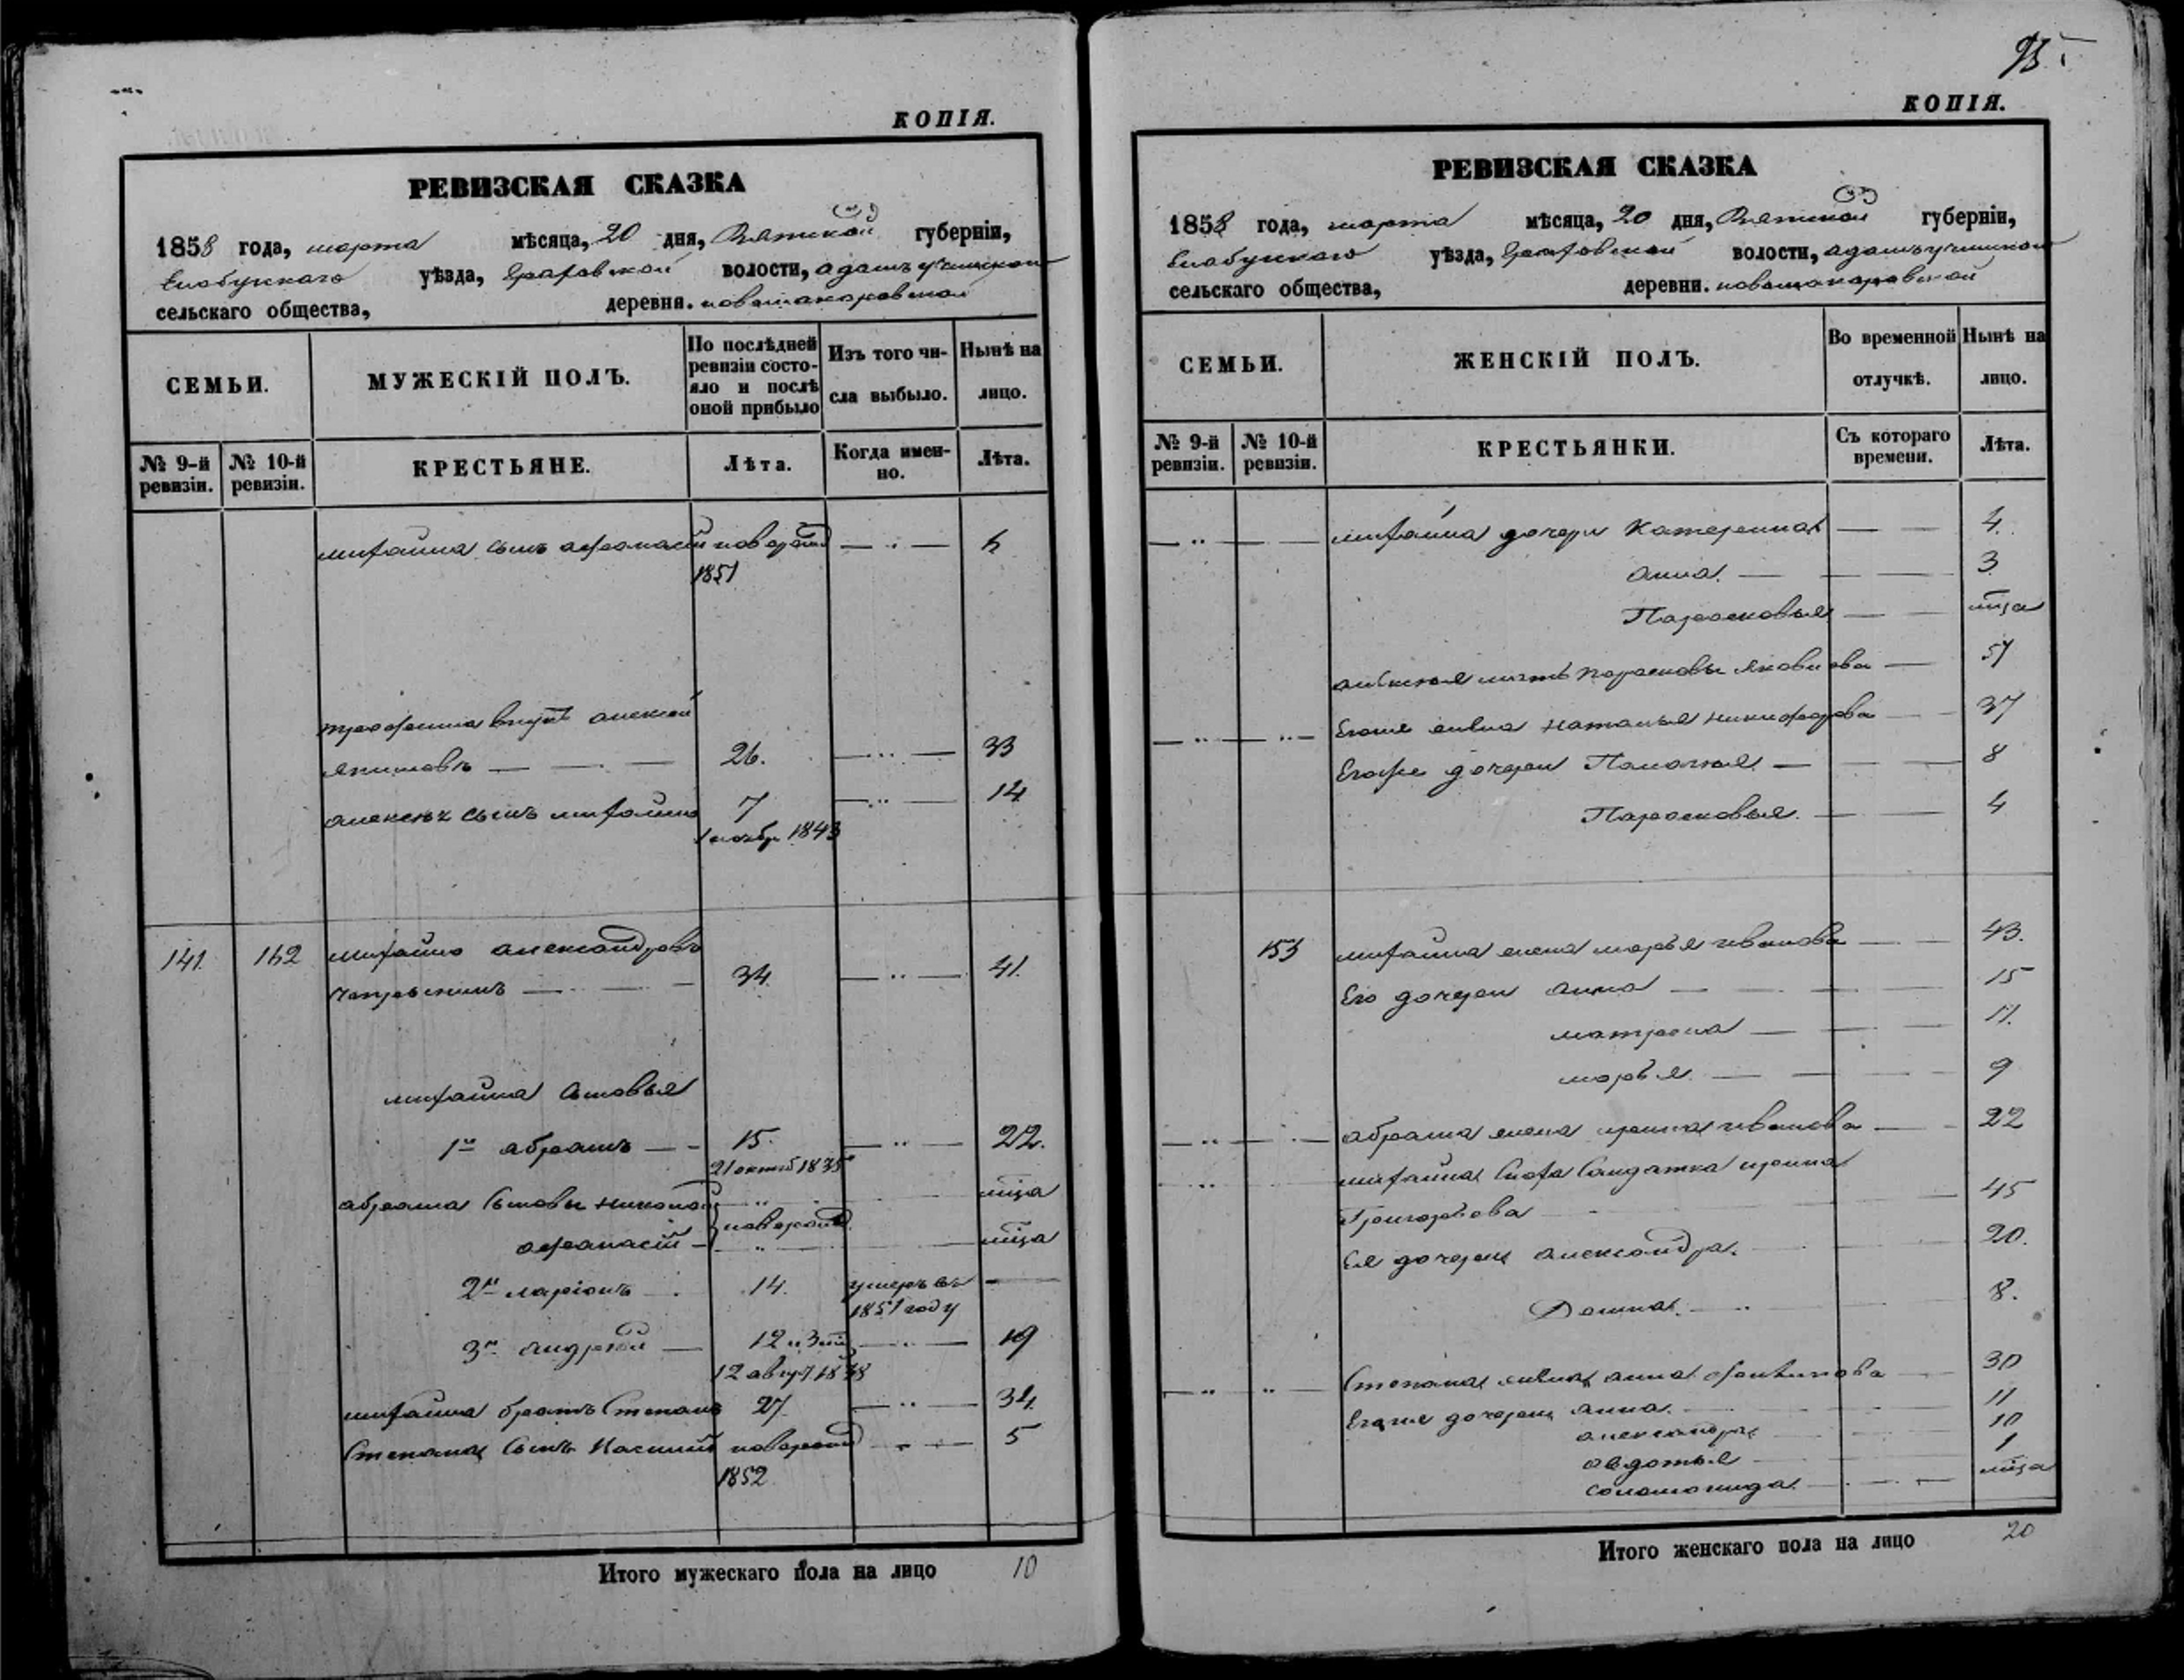 КОПІЯ.
РЕВИЗСКАЯ СКАЗКА
1858 года, марта мѣсяца, 20 дня, Вятской губерніи,
Елабужскаго уѣзда, Граховской волости,
сельскаго общества, деревни.
СЕМЬИ. МУЖЕСКІЙ ПОЛЪ. По послѣдней ревизіи состояло и послѣ оной прибыло Изъ того числа выбыло. Нынѣ на лицо.
№ 9-й ревизіи. № 10-й ревизіи. КРЕСТЬЯНЕ. Лѣта. Когда именно. Лѣта.
михайла сынъ афанасій новорожд
1851
трофима внукъ алексей
якимовъ 26. 33
алексѣя сынъ михайло 7 14
ноябр 1843
141. михайло александровъ
34 41.
михайла сыновья
1й абрамъ 15. 22.
21 октяб 1835
абрама сыновья николай
новорожд
афанасій
2й ларіонъ 14. умеръ въ
1851 году
3й андрей 12 19
12 авгус. 1838
михайла братъ степанъ 27 34.
степана сынъ новорожд 5
1852
Итого мужескаго пола на лицо 10
95
КОПІЯ.
РЕВИЗСКАЯ СКАЗКА
1858 года, марта мѣсяца, 20 дня, Вятской губерніи,
Елабужскаго уѣзда, Граховской волости,
сельскаго общества, деревни.
СЕМЬИ. ЖЕНСКІЙ ПОЛЪ. Во временной отлучкѣ. Нынѣ на лицо.
№ 9-й ревизіи. № 10-й ревизіи. КРЕСТЬЯНКИ. Съ котораго времени. Лѣта.
михайла дочери Катерина 4.
анна. 3
Парасковья
мать парасковья яковлева 57
Егоже жена наталья никифорова 37
Егоже дочери Палагея 8
Парасковья. 4
153 михайла жена марья иванова 43.
Его дочери анна 15
матрена 11.
марья 9
абрама жена ирина иванова 22
михайла сноха солдатка ирина
Григорьева 45
Ея дочери александра. 20.
Домна. 8.
степана жена анна 30
Егоже дочери анна. 11
александра 10
авдотья 1
соломонида.
Итого женскаго пола на лицо 20